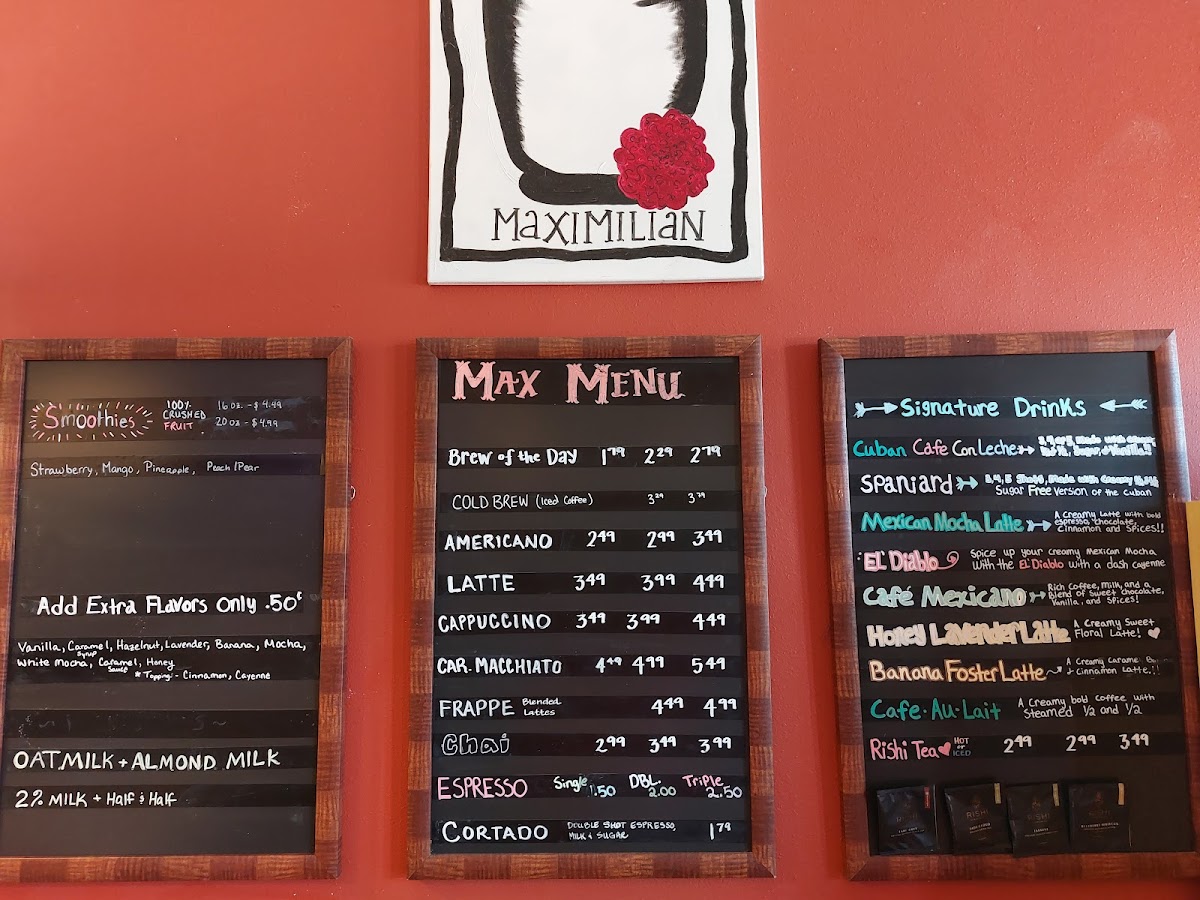 MAXIMILIAN
Smoothies
100%
CRUSHED
FRUIT
16 oz. - $4.49
20 oz - $4.99
Strawberry, Mango, Pineapple, Peach/Pear
Add Extra Flavors Only .50¢
Vanilla, Caramel, Hazelnut, Lavender, Banana, Mocha,
Syrup
White Mocha, Caramel, Honey
Sauce
*Topping - Cinnamon, Cayenne
OAT MILK + ALMOND MILK
2% MILK + Half & Half
MAX MENU
Brew of the Day 1.79 2.29 2.79
COLD BREW (Iced Coffee) 3.29 3.79
AMERICANO 2.49 2.99 3.49
LATTE 3.49 3.99 4.49
CAPPUCCINO 3.49 3.99 4.49
CAR. MACCHIATO 4.49 4.99 5.49
FRAPPE Blended
Lattes
4.49 4.99
Chai 2.99 3.49 3.99
ESPRESSO Single 1.50 DBL. 2.00 Triple 2.50
CORTADO DOUBLE SHOT ESPRESSO,
MILK & SUGAR
1.79
Signature Drinks
Cuban Cafe Con Leche
SPANIARD
Sugar Free Version of the Cuban
Mexican Mocha Latte A creamy Latte with bold
espresso, chocolate,
Cinnamon and Spices!!
"EL" Diablo Spice up your creamy Mexican Mocha
with the EL Diablo with a dash cayenne
Café Mexicano Rich Coffee, Milk, and a
Blend of Sweet chocolate,
Vanilla, and Spices!
Honey Lavender Latte A Creamy Sweet
Floral Latte!
Banana Foster Latte A Creamy Carame
+ Cinnamon Latte.!!
Cafe·Au·Lait A Creamy bold coffee with
Steamed 1/2 and 1/2
Rishi Tea HOT
or
ICED
2.49 2.99 3.49
RISHI
RISHI